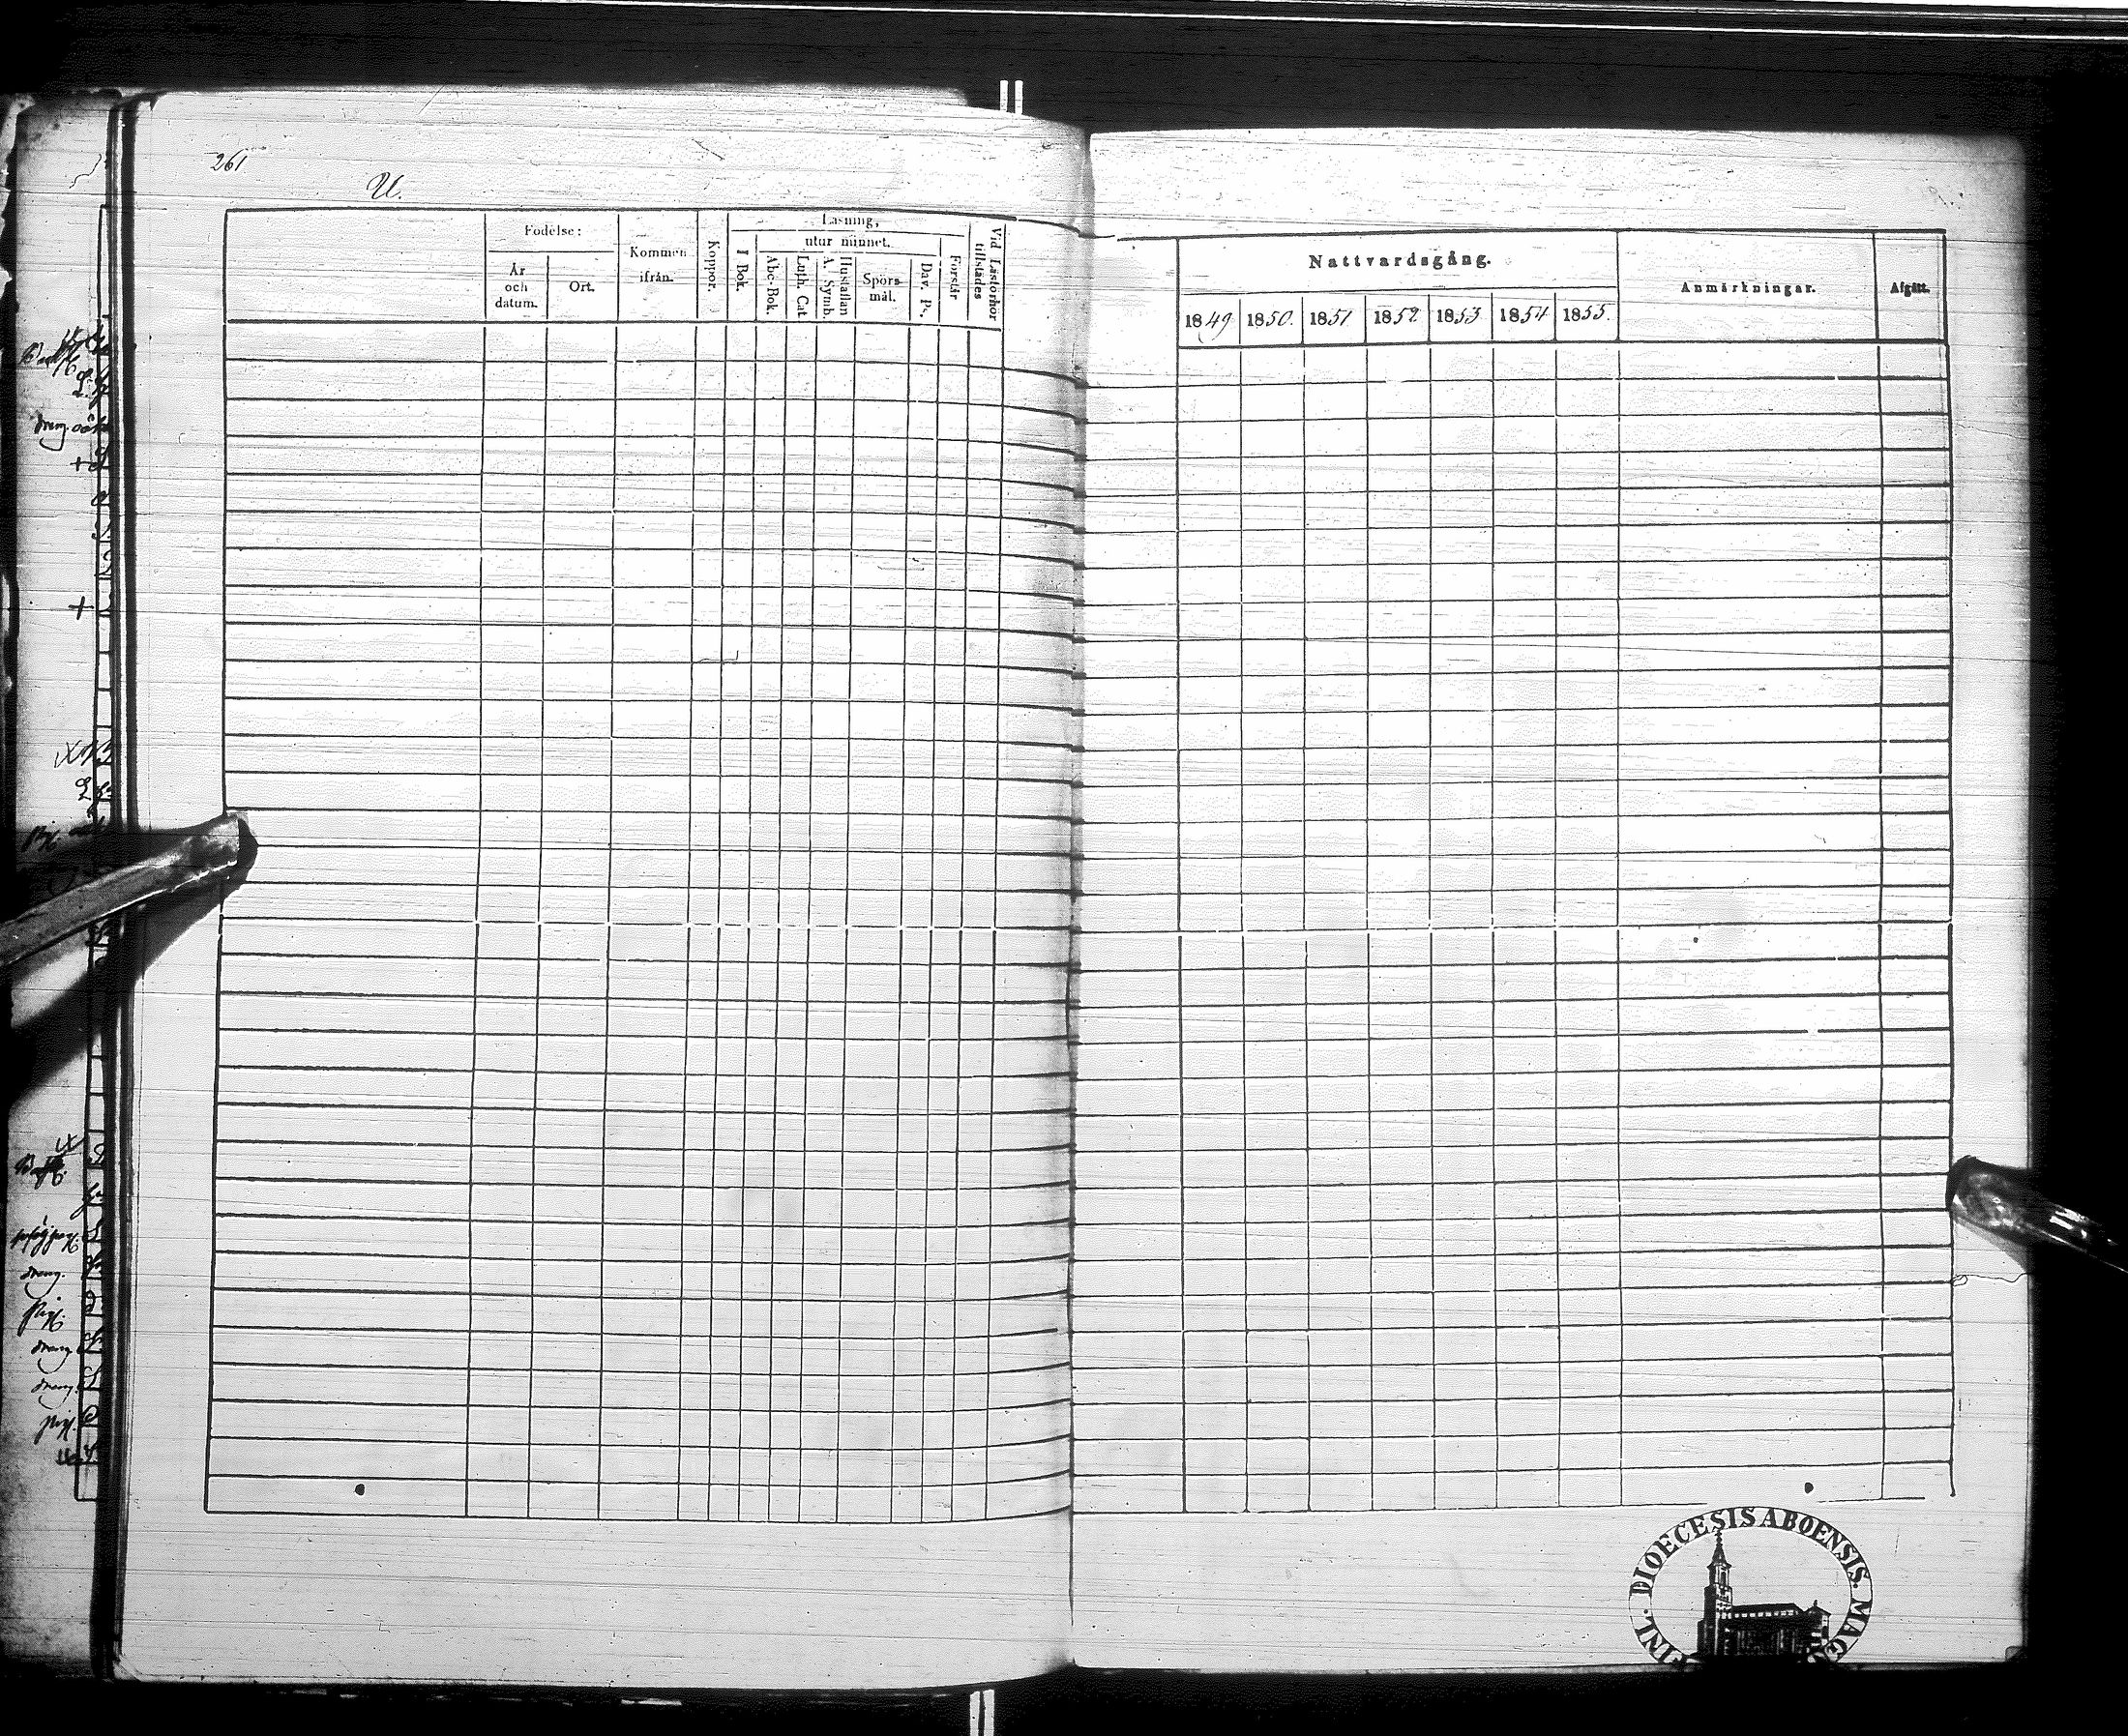 261
U.
Födelse:
År
och
datum.
Ort.
Kommen
ifrån.
Koppor.
Läsning,
utur minnet.
I Bok.
Abc-Bok.
Luth. Cat.
A. Symb.
Hustaflan
Spörs
mål.
Dav. Ps.
Förstår
Vid Läsförhör
tillstädes
Nattvardsgång.
1849
1850.
1851
1852
1853
1854
1855.
Anmärkningar.
Afgått.
drng.
+
+
drng.
drng.
drng.
DIOECESIS ABOENSIS.